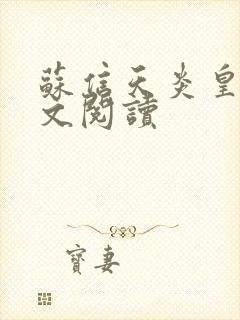 蘇信天炎皇
文閱讀
寶妻